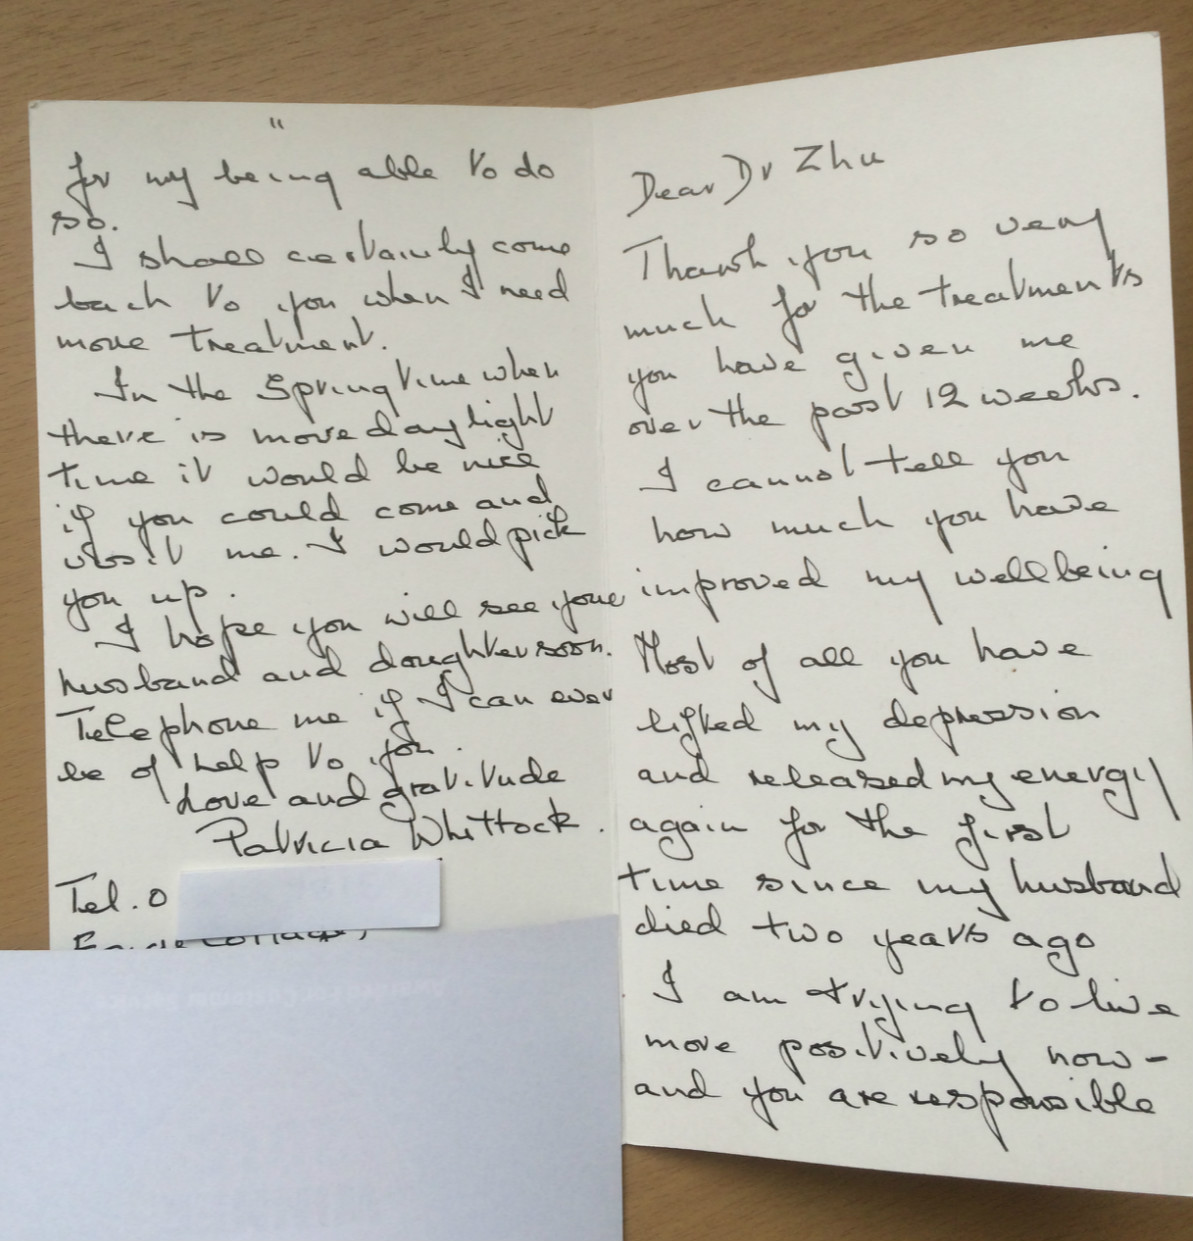 Dear Dr Zhu
Thank you so very
much for the treatments
you have given me
over the past 12 weeks.
I cannot tell you
how much you have
improved my wellbeing
Most of all you have
lifted my depression
and released my energy
again for the first
time since my husband
died two years ago
I am trying to live
more positively now-
and you are responsible
"
for my being able to do
so.
I shall certainly come
back to you when I need
more treatment.
In the Springtime when
there is more daylight
time it would be nice
if you could come and
visit me. I would pick
you up.
I hope you will see your
husband and daughter soon.
Telephone me if I can ever
be of help to you.
Love and gratitude
Patricia Whittock.
Tel. 0